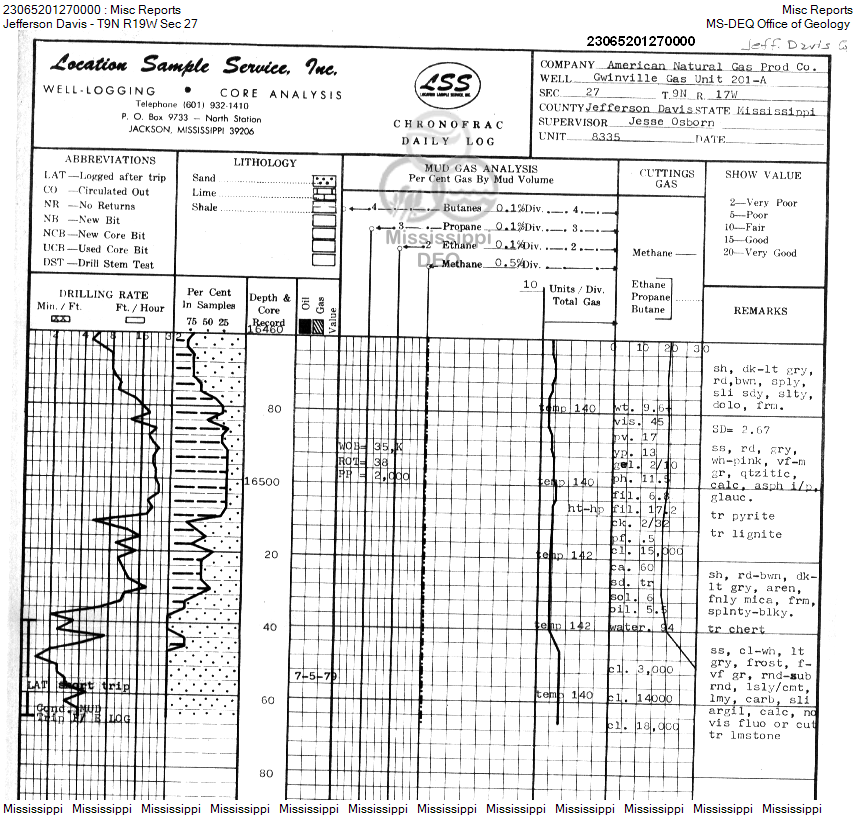 23065201270000 : Misc Reports
Misc Reports
Jefferson Davis - T9N R19W Sec 27
MS-DEQ Office of Geology
23065201270000
Jeff. Davis
Location Sample Service, Inc.
WELL-LOGGING • CORE ANALYSIS
Telephone (601) 932-1410
P. O. Box 9733 — North Station
JACKSON, MISSISSIPPI 39206
LSS
LOCATION SAMPLE SERVICE, INC.
CHRONOFRAC
DAILY LOG
COMPANY American Natural Gas Prod Co.
WELL Gwinville Gas Unit 201-A
SEC 27 T. 9N R. 17W
COUNTY Jefferson Davis STATE Mississippi
SUPERVISOR Jesse Osborn
UNIT 8335 DATE
ABBREVIATIONS
LAT—Logged after trip
CO —Circulated Out
NR —No Returns
NB —New Bit
NCB—New Core Bit
UCB—Used Core Bit
DST—Drill Stem Test
LITHOLOGY
Sand
Lime
Shale
MUD GAS ANALYSIS
Per Cent Gas By Mud Volume
4 Butanes 0.1%Div. 4
3 Propane 0.1%Div. 3
2 Ethane 0.1%Div. 2
Methane 0.5%Div.
Mississippi
DEQ
CUTTINGS
GAS
Methane
Ethane
Propane
Butane
SHOW VALUE
2—Very Poor
5—Poor
10—Fair
15—Good
20—Very Good
DRILLING RATE
Min. / Ft. Ft. / Hour
Per Cent
In Samples
75 50 25
Depth &
Core
Record
16460
Oil
Gas
Value
10 Units / Div.
Total Gas
REMARKS
2 4 8
0 10 20 30
80
16500
20
40
60
80
WOB= 35,K
ROT= 38
PP = 2,000
7-5-79
temp 140
temp 140
temp 142
temp 142
temp 140
wt. 9.6+
vis. 45
pv. 17
yp. 13
gel. 2/10
ph. 11.5
fil. 6.8
ht-hp fil. 17.2
ck. 2/32
pf. .5
cl. 15,000
ca. 60
sd. tr
sol. 6
oil. 5.5
water. 94
cl. 3,000
cl. 14000
cl. 18,000
LAT short trip
Cond. MUD
Trip F/ E LOG
sh, dk-lt gry,
rd,bwn, sply,
sli sdy, slty,
dolo, frm.
SD= 2.67
ss, rd, gry,
wh-pink, vf-m
gr, qtzitic,
calc, asph i/p,
glauc.
tr pyrite
tr lignite
sh, rd-bwn, dk-
lt gry, aren,
fnly mica, frm,
splnty-blky.
tr chert
ss, cl-wh, lt
gry, frost, f-
vf gr, rnd-sub
rnd, lsly/cmt,
lmy, carb, sli
argil, calc, no
vis fluo or cut
tr lmstone
Mississippi Mississippi Mississippi Mississippi Mississippi Mississippi Mississippi Mississippi Mississippi Mississippi Mississippi Mississippi